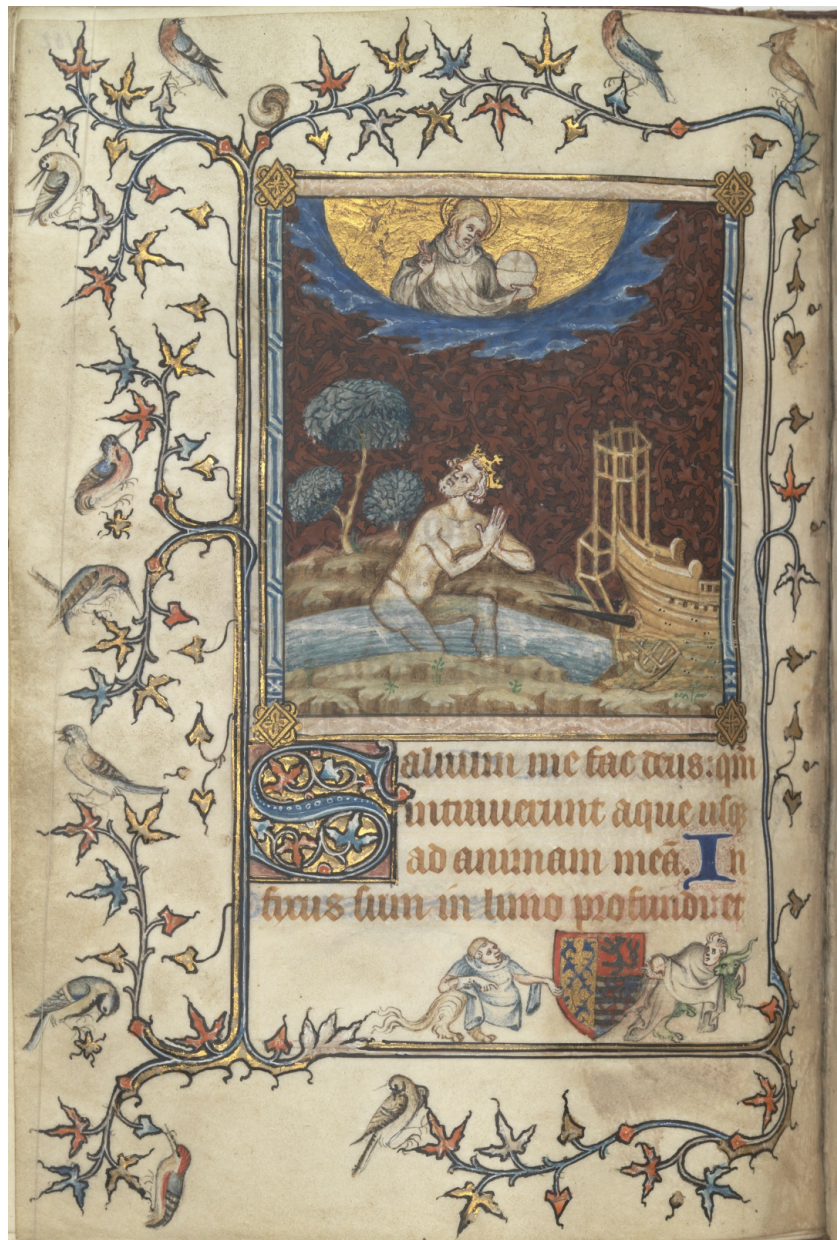 Saluum me fac deus: qm̄
intrauerunt aque usq;
ad animam meā. In
fixus sum in limo profundi: et